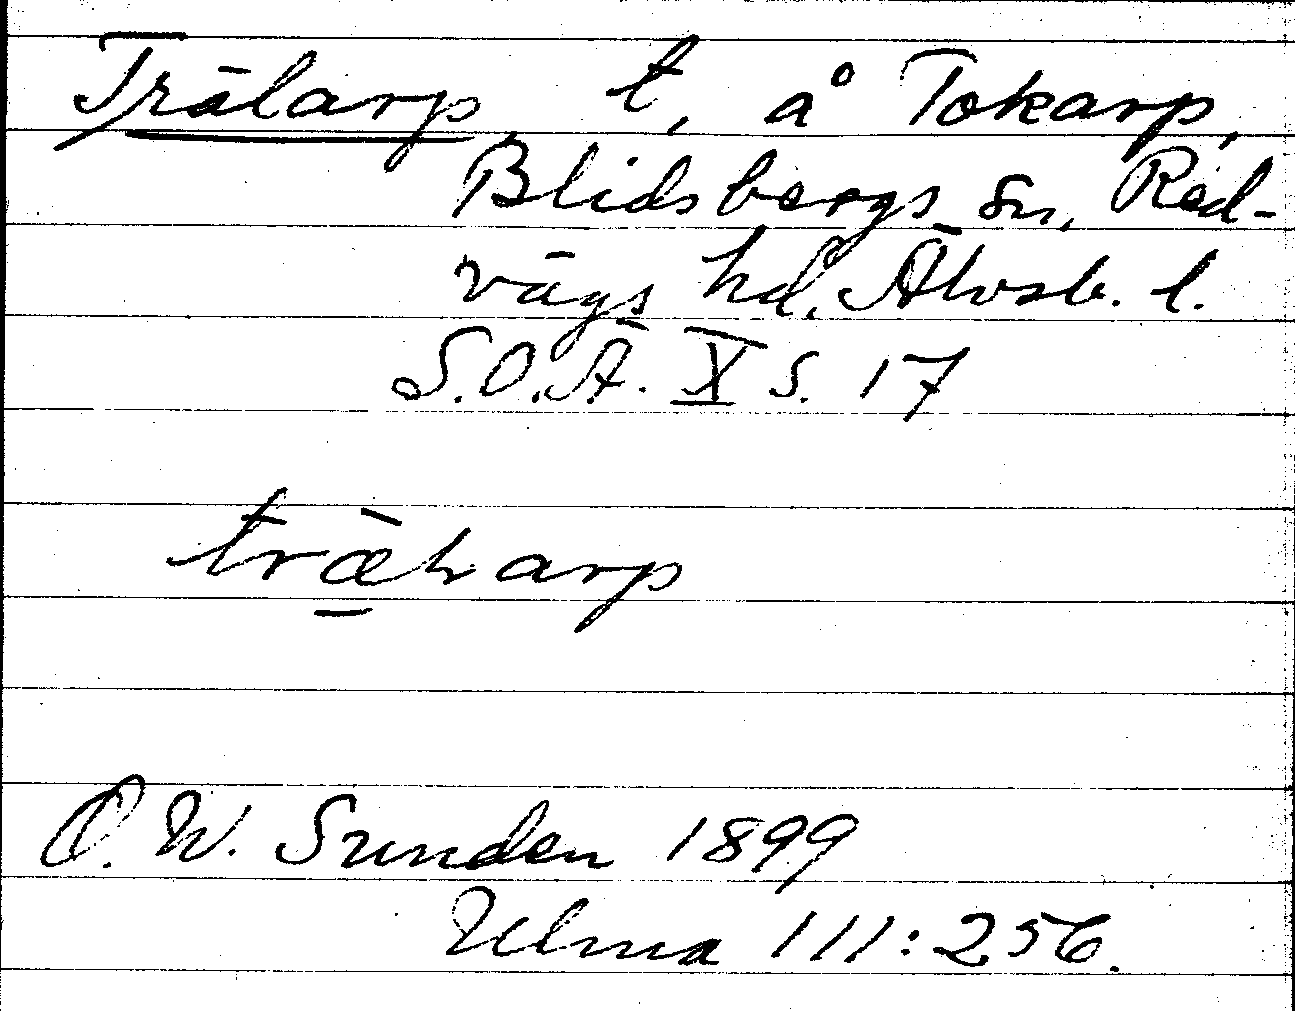 Trälarp, t, å Tokarp,
Blidsbergs sn, Red-
vägs hd, Älvsb. l.
S.O.Ä. X s. 17
O. W. Sunden 1899
Ulma 111:256.